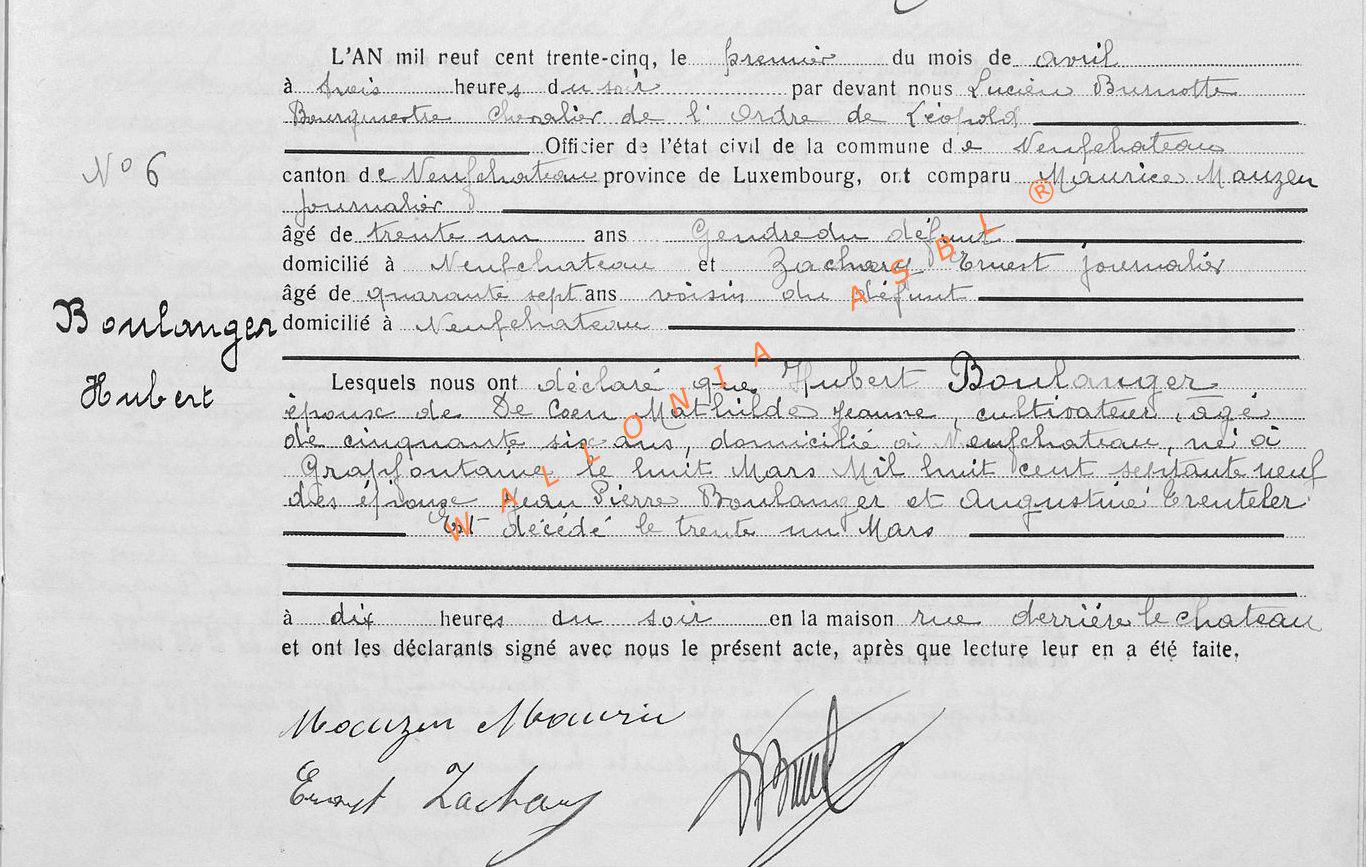 L'AN mil neuf cent trente-cinq, le premier du mois de avril
à trois heures du soir par devant nous Lucien Burnotte
Bourgmestre Chevalier de l'Ordre de Léopold
Officier de l'état civil de la commune de Neufchateau
N° 6
canton de Neufchateau province de Luxembourg, ont comparu Maurice Mauzen
journalier
âgé de trente un ans Gendre du défunt
domicilié à Neufchateau et Zachary Ernest journalier
âgé de quarante sept ans voisin du défunt
Boulanger
Hubert
domicilié à Neufchateau
Lesquels nous ont déclaré que Hubert Boulanger
époux de De Coen Mathilde Jeanne, cultivateur, âgé
de cinquante six ans, domicilié à Neufchateau, né à
Grapfontaine le huit Mars Mil huit cent septante neuf
des époux Jean Pierre Boulanger et Augustine
Est décédé le trente un Mars
à dix heures du soir en la maison rue derrière le chateau
et ont les déclarants signé avec nous le présent acte, après que lecture leur en a été faite.
Mauzen Maurice
Ernest Zachary
WALLONIA ASBL ®